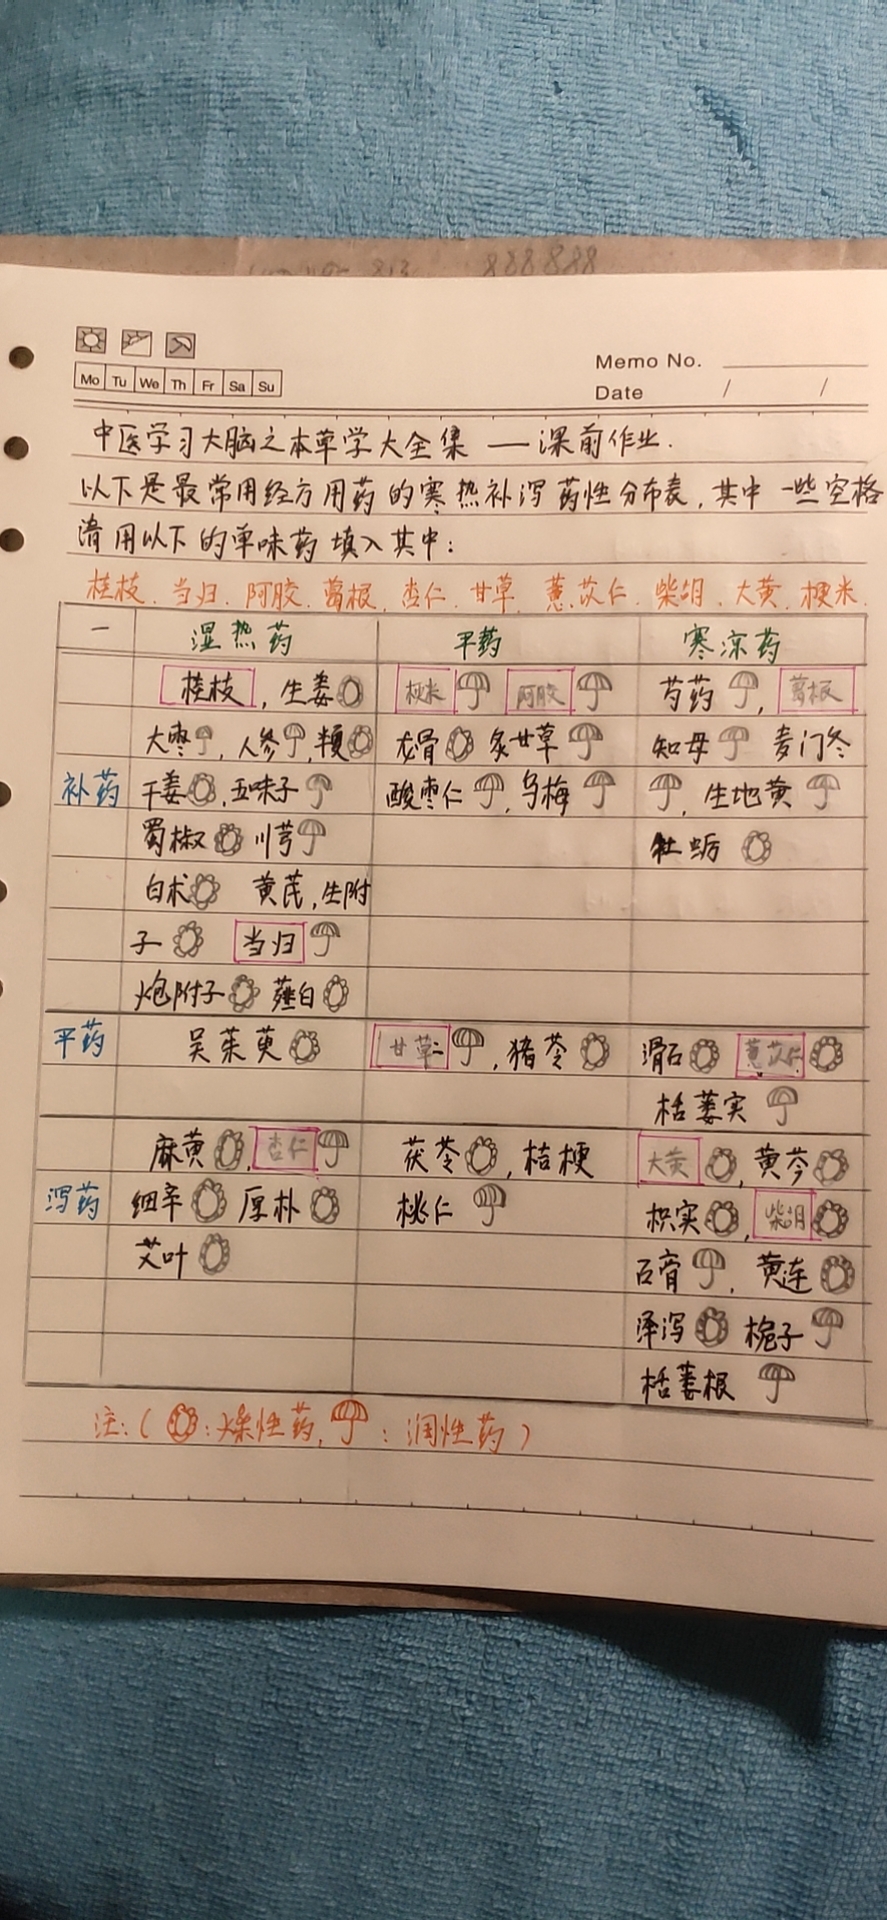 888888
Memo No.
Mo Tu We Th Fr Sa Su
Date / /
中医学习大脑之本草学大全集 — 课前作业.
以下是最常用经方用药的寒热补泻药性分布表,其中一些空格
请用以下的单味药填入其中:
桂枝、当归、阿胶、葛根、杏仁、甘草、薏苡仁、柴胡、大黄、梗米
一 湿热药 平药 寒凉药
桂枝,生姜 梗米 阿胶 芍药,葛根
大枣,人参, 龙骨 炙甘草 知母 麦门冬
补药 干姜,五味子 酸枣仁,乌梅 ,生地黄
蜀椒 川芎 牡蛎
白术 黄芪,生附
子 当归
炮附子 薤白
平药 吴茱萸 甘草,猪苓 滑石 薏苡仁
栝蒌实
麻黄,杏仁 茯苓,桔梗 大黄,黄芩
泻药 细辛 厚朴 桃仁 枳实,柴胡
艾叶 石膏,黄连
泽泻 栀子
栝蒌根
注:( :燥性药, :润性药)